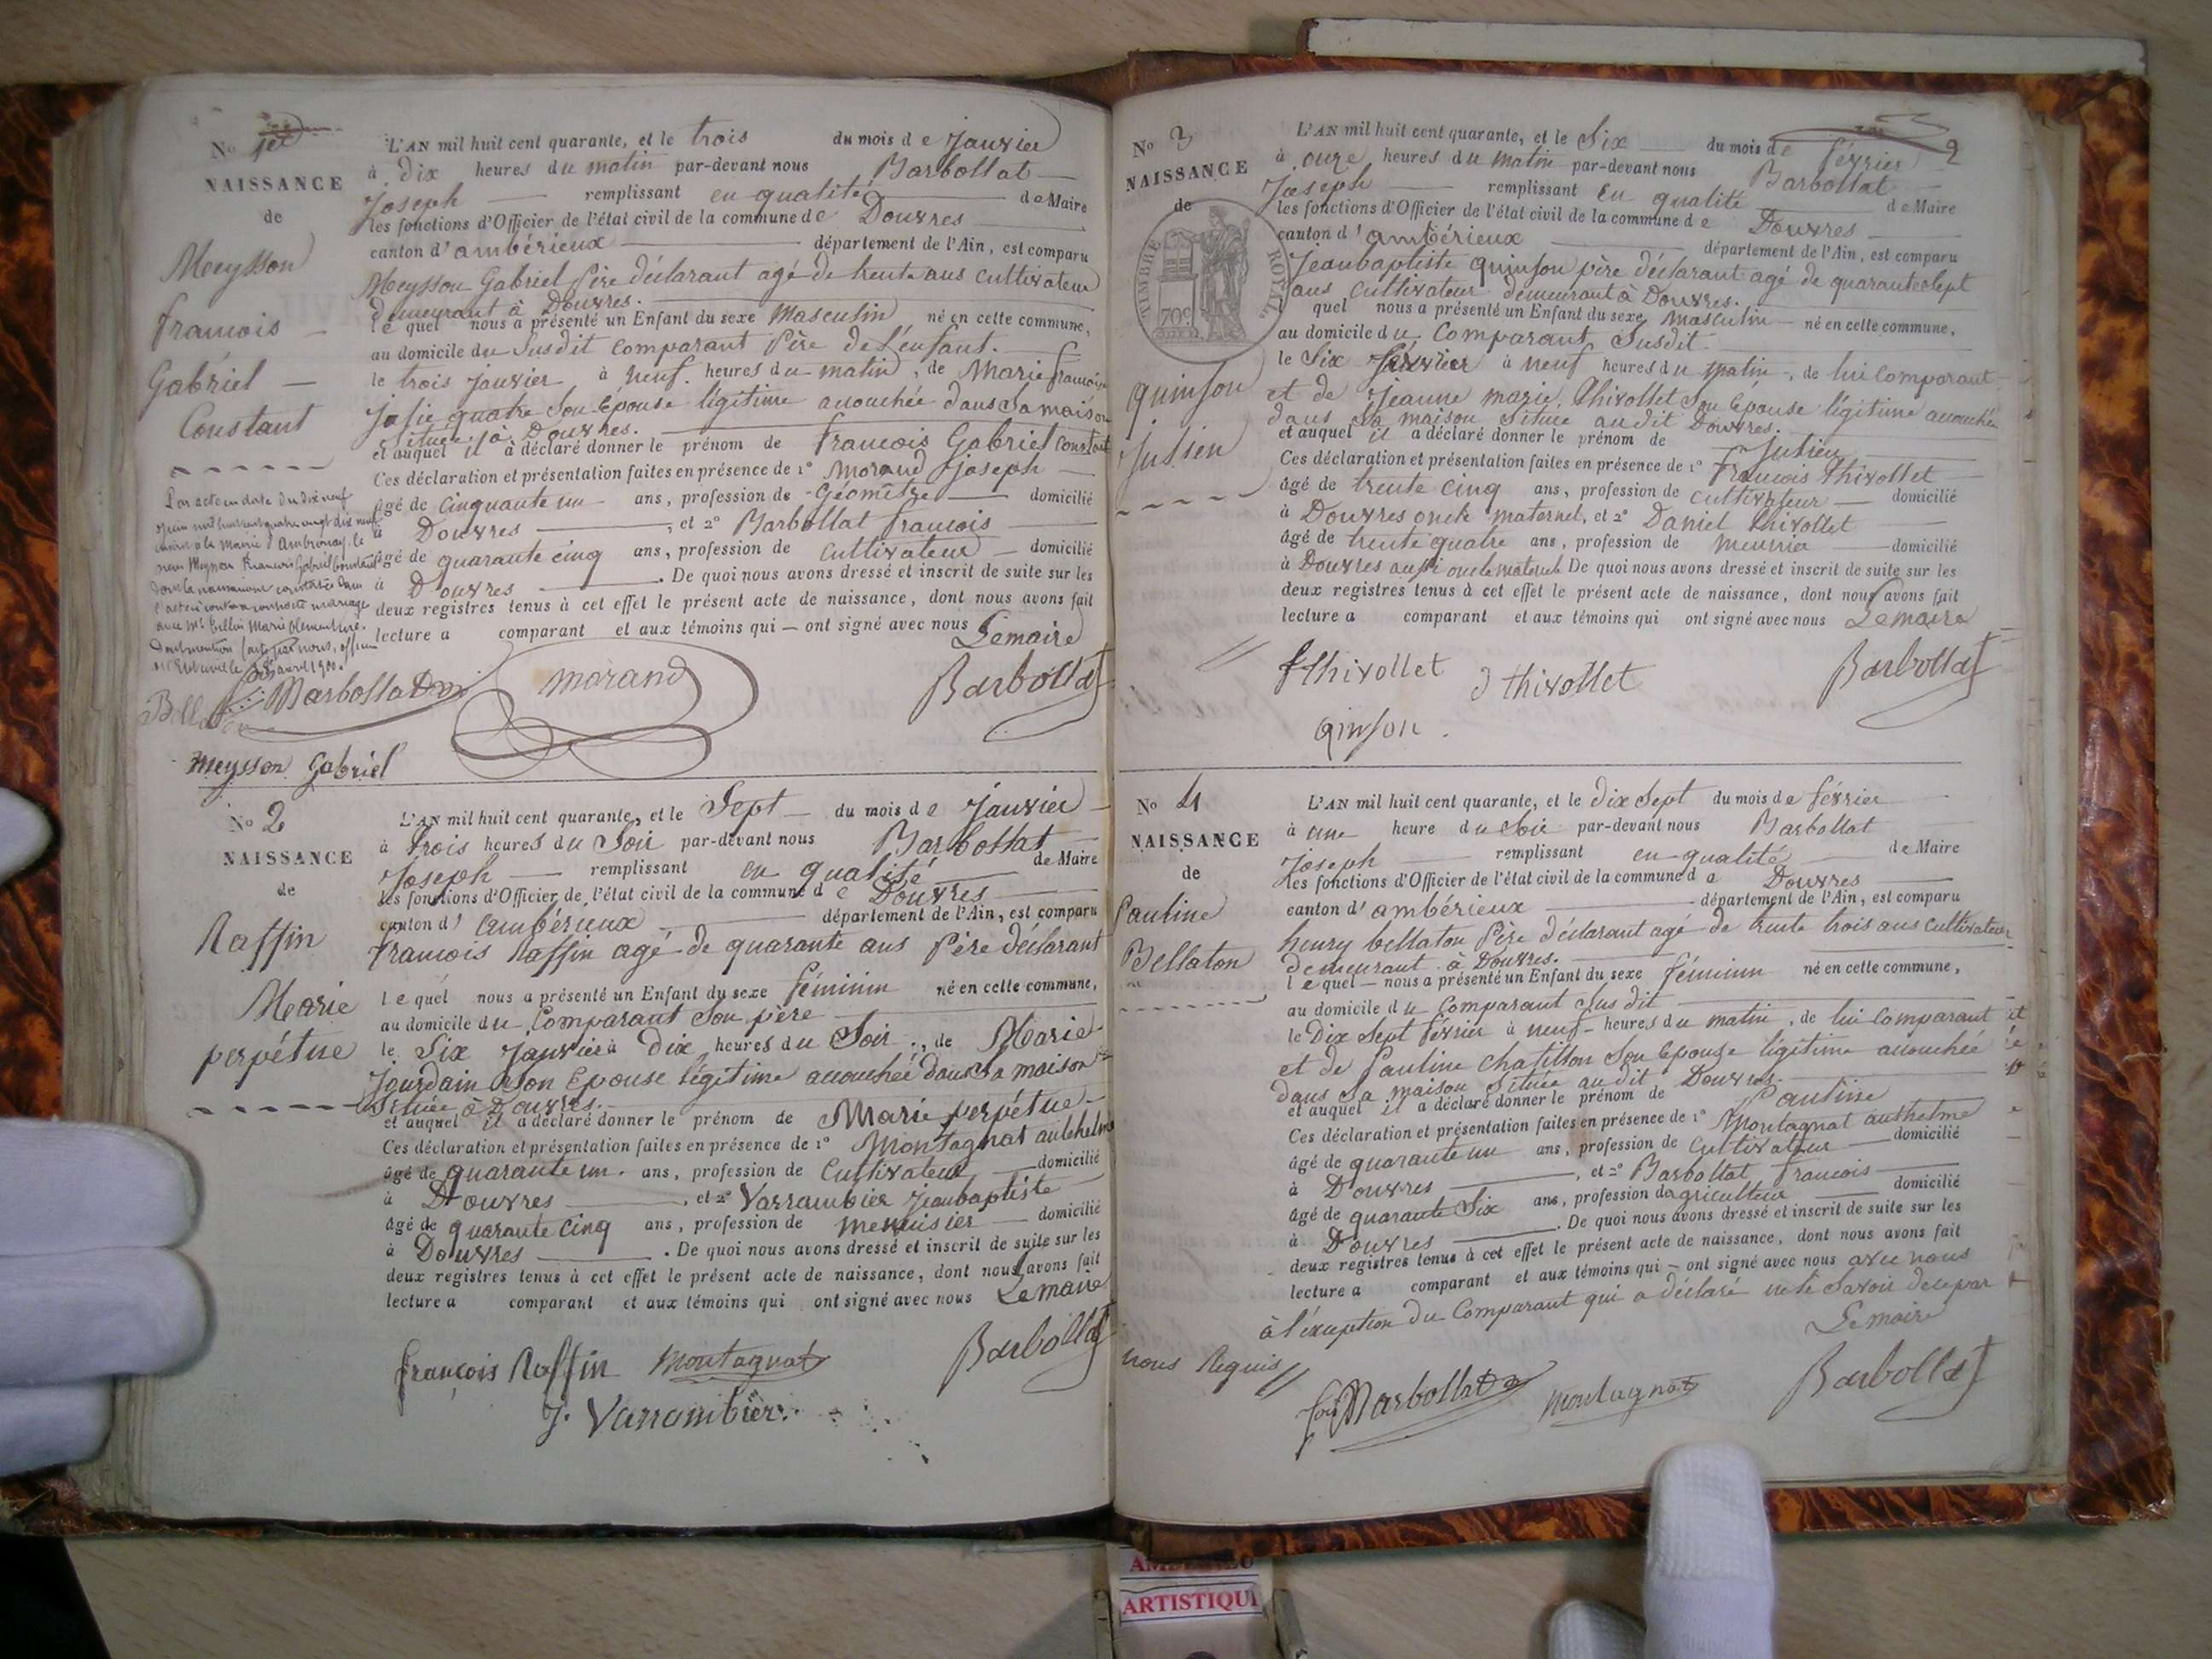 No 1er
NAISSANCE
de
Meysson
francois
Gabriel
Constant
L'AN mil huit cent quarante, et le trois du mois de Janvier
à dix heures du matin par-devant nous Barbollat
Joseph remplissant en qualité de Maire
les fonctions d'Officier de l'état civil de la commune de Douvres
canton d'ambérieux département de l'Ain, est comparu
Meysson Gabriel Père déclarant agé de trente ans cultivateur
demeurant à Douvres.
le quel nous a présenté un Enfant du sexe Masculin né en cette commune,
au domicile du susdit comparant Père de L'enfant.
le trois janvier à neuf heures du matin, de Marie francoise
josie quatre son Epouse légitime accouchée dans sa maison
située à Douvres.
et auquel il a déclaré donner le prénom de francois Gabriel constant
Ces déclaration et présentation faites en présence de 1° Morand joseph
âgé de cinquante un ans, profession de Géomètre domicilié
à Douvres, et 2° Barbollat francois
âgé de quarante cinq ans, profession de cultivateur domicilié
à Douvres. De quoi nous avons dressé et inscrit de suite sur les
deux registres tenus à cet effet le présent acte de naissance, dont nous avons fait
lecture a comparant et aux témoins qui ont signé avec nous Lemaire
Par acte en date du dix neuf
mil huit cent quatre vingt dix neuf
à la Mairie d'Ambronay, le
sieur Meysson Francois Gabriel Constant
dont la naissance constatée dans
l'acte ci contre a contracté mariage
avec Marie
Dont mention faite par nous, officier
avril 1900.
Barbollat morand Barbollat
meysson Gabriel
No 2
NAISSANCE
de
Raffin
Marie
perpétue
L'AN mil huit cent quarante, et le Sept du mois de Janvier
à trois heures du Soir par-devant nous Barbollat
Joseph remplissant en qualité de Maire
les fonctions d'Officier de l'état civil de la commune de Douvres
canton d'ambérieux département de l'Ain, est comparu
francois Raffin agé de quarante ans Père déclarant
le quel nous a présenté un Enfant du sexe féminin né en cette commune,
au domicile du Comparant Son père
le Six Janvier à Dix heures du Soir, de Marie
Jourdain son Epouse légitime accouchée dans sa maison
située à Douvres.
et auquel il a déclaré donner le prénom de Marie perpétue
Ces déclaration et présentation faites en présence de 1° Montagnat anthelme
âgé de quarante un ans, profession de Cultivateur domicilié
à Douvres, et 2° Varrambier jeanbaptiste
âgé de quarante cinq ans, profession de menuisier domicilié
à Douvres. De quoi nous avons dressé et inscrit de suite sur les
deux registres tenus à cet effet le présent acte de naissance, dont nous avons fait
lecture a comparant et aux témoins qui ont signé avec nous Le maire
françois Raffin Montagnat Barbollat
J. Varrambier
No 3
NAISSANCE
de
TIMBRE ROYAL
70c
quinson
julien
L'AN mil huit cent quarante, et le Six du mois de février
à onze heures du matin par-devant nous Barbollat
Joseph remplissant en qualité de Maire
les fonctions d'Officier de l'état civil de la commune de Douvres
canton d'ambérieux département de l'Ain, est comparu
Jeanbaptiste quinson père déclarant agé de quarante sept
ans cultivateur demeurant à Douvres.
quel nous a présenté un Enfant du sexe masculin né en cette commune,
au domicile du Comparant Susdit
le Six février à neuf heures du matin, de lui comparant
et de jeanne marie thivollet son Epouse légitime accouchée
dans sa maison située au dit Douvres.
et auquel il a déclaré donner le prénom de Julien
Ces déclaration et présentation faites en présence de 1° francois thivollet
âgé de trente cinq ans, profession de cultivateur domicilié
à Douvres oncle maternel, et 2° Daniel thivollet
âgé de trente quatre ans, profession de meunier domicilié
à Douvres aussi oncle maternel De quoi nous avons dressé et inscrit de suite sur les
deux registres tenus à cet effet le présent acte de naissance, dont nous avons fait
lecture a comparant et aux témoins qui ont signé avec nous Le maire
fthivollet d thivollet Barbollat
qinson
No 4
NAISSANCE
de
Pauline
Bellaton
L'AN mil huit cent quarante, et le dix Sept du mois de février
à une heure du Soir par-devant nous Barbollat
Joseph remplissant en qualité de Maire
les fonctions d'Officier de l'état civil de la commune de Douvres
canton d'ambérieux département de l'Ain, est comparu
henry bellaton Père déclarant agé de trente trois ans cultivateur
demeurant à Douvres.
le quel nous a présenté un Enfant du sexe féminin né en cette commune,
au domicile du Comparant Sus dit
le Dix Sept février à neuf heures du matin, de lui comparant
et de Pauline chatillon Son Epouse légitime accouchée
dans sa maison située au dit Douvres.
et auquel il a déclaré donner le prénom de Pauline
Ces déclaration et présentation faites en présence de 1° Montagnat anthelme
âgé de quarante un ans, profession de Cultivateur domicilié
à Douvres, et 2° Barbollat francois
âgé de quarante Six ans, profession dagriculteur domicilié
à Douvres. De quoi nous avons dressé et inscrit de suite sur les
deux registres tenus à cet effet le présent acte de naissance, dont nous avons fait
lecture a comparant et aux témoins qui ont signé avec nous avec nous
à l'exception du Comparant qui a déclaré ne le Savoir de ce par
nous Requis Le maire
Barbollat Montagnat Barbollat
ARTISTIQU